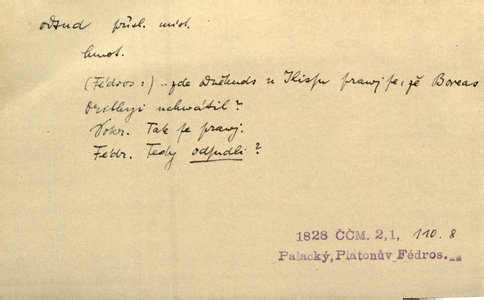 odsud přísl. míst.
hmot.
(Fédros:) .. zda odněkuds u Ilisu prawj se, že Boreas
Orithyi uchwátil?
Sokr. Tak se prawj.
Fédr. Tedy odsudli?
1828 ČČM. 2,1, 110. 8
Palacký, Platonův Fédros.